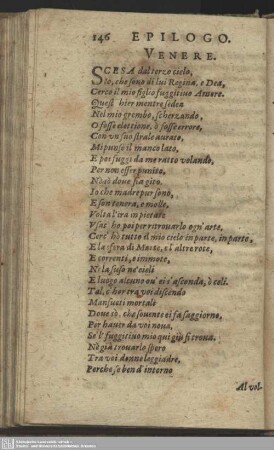 146 EPILOGO.
VENERE.
SCESA dal terzo cielo,
Io, che sono di lui Regina, e Dea,
Cerco il mio figlio fuggitivo Amore.
Quest' hier mentre sedea
Nel mio grembo, scherzando,
O fosse elettione, ò fosse errore,
Con vn suo strale aurato,
Mi punse il manco lato,
E poi fuggì da me ratto volando,
Per non esser punito,
Nè sò doue sia gito.
Io che madre pur sono,
E son tenera, e molle,
Volta l'ira in pietate
Vsat' ho poi per ritrouarlo ogn'arte.
Cerc' hò tutto il mio cielo in parte, in parte,
E la sfera di Marte, e l'altre rote,
E correnti, e immote,
Ne la suso ne' cieli
E luogo alcuno ou' ei s'asconda, ò celi.
Tal, c'hor tra voi discendo
Mansueti mortali
Doue sò, che souente ei fa soggiorno,
Per hauer da voi noua,
Se'l fuggitiuo mio qui giù si troua.
Nè già trouarlo spero
Tra voi donne leggiadre,
Perche, se ben d'intorno
Al vol-